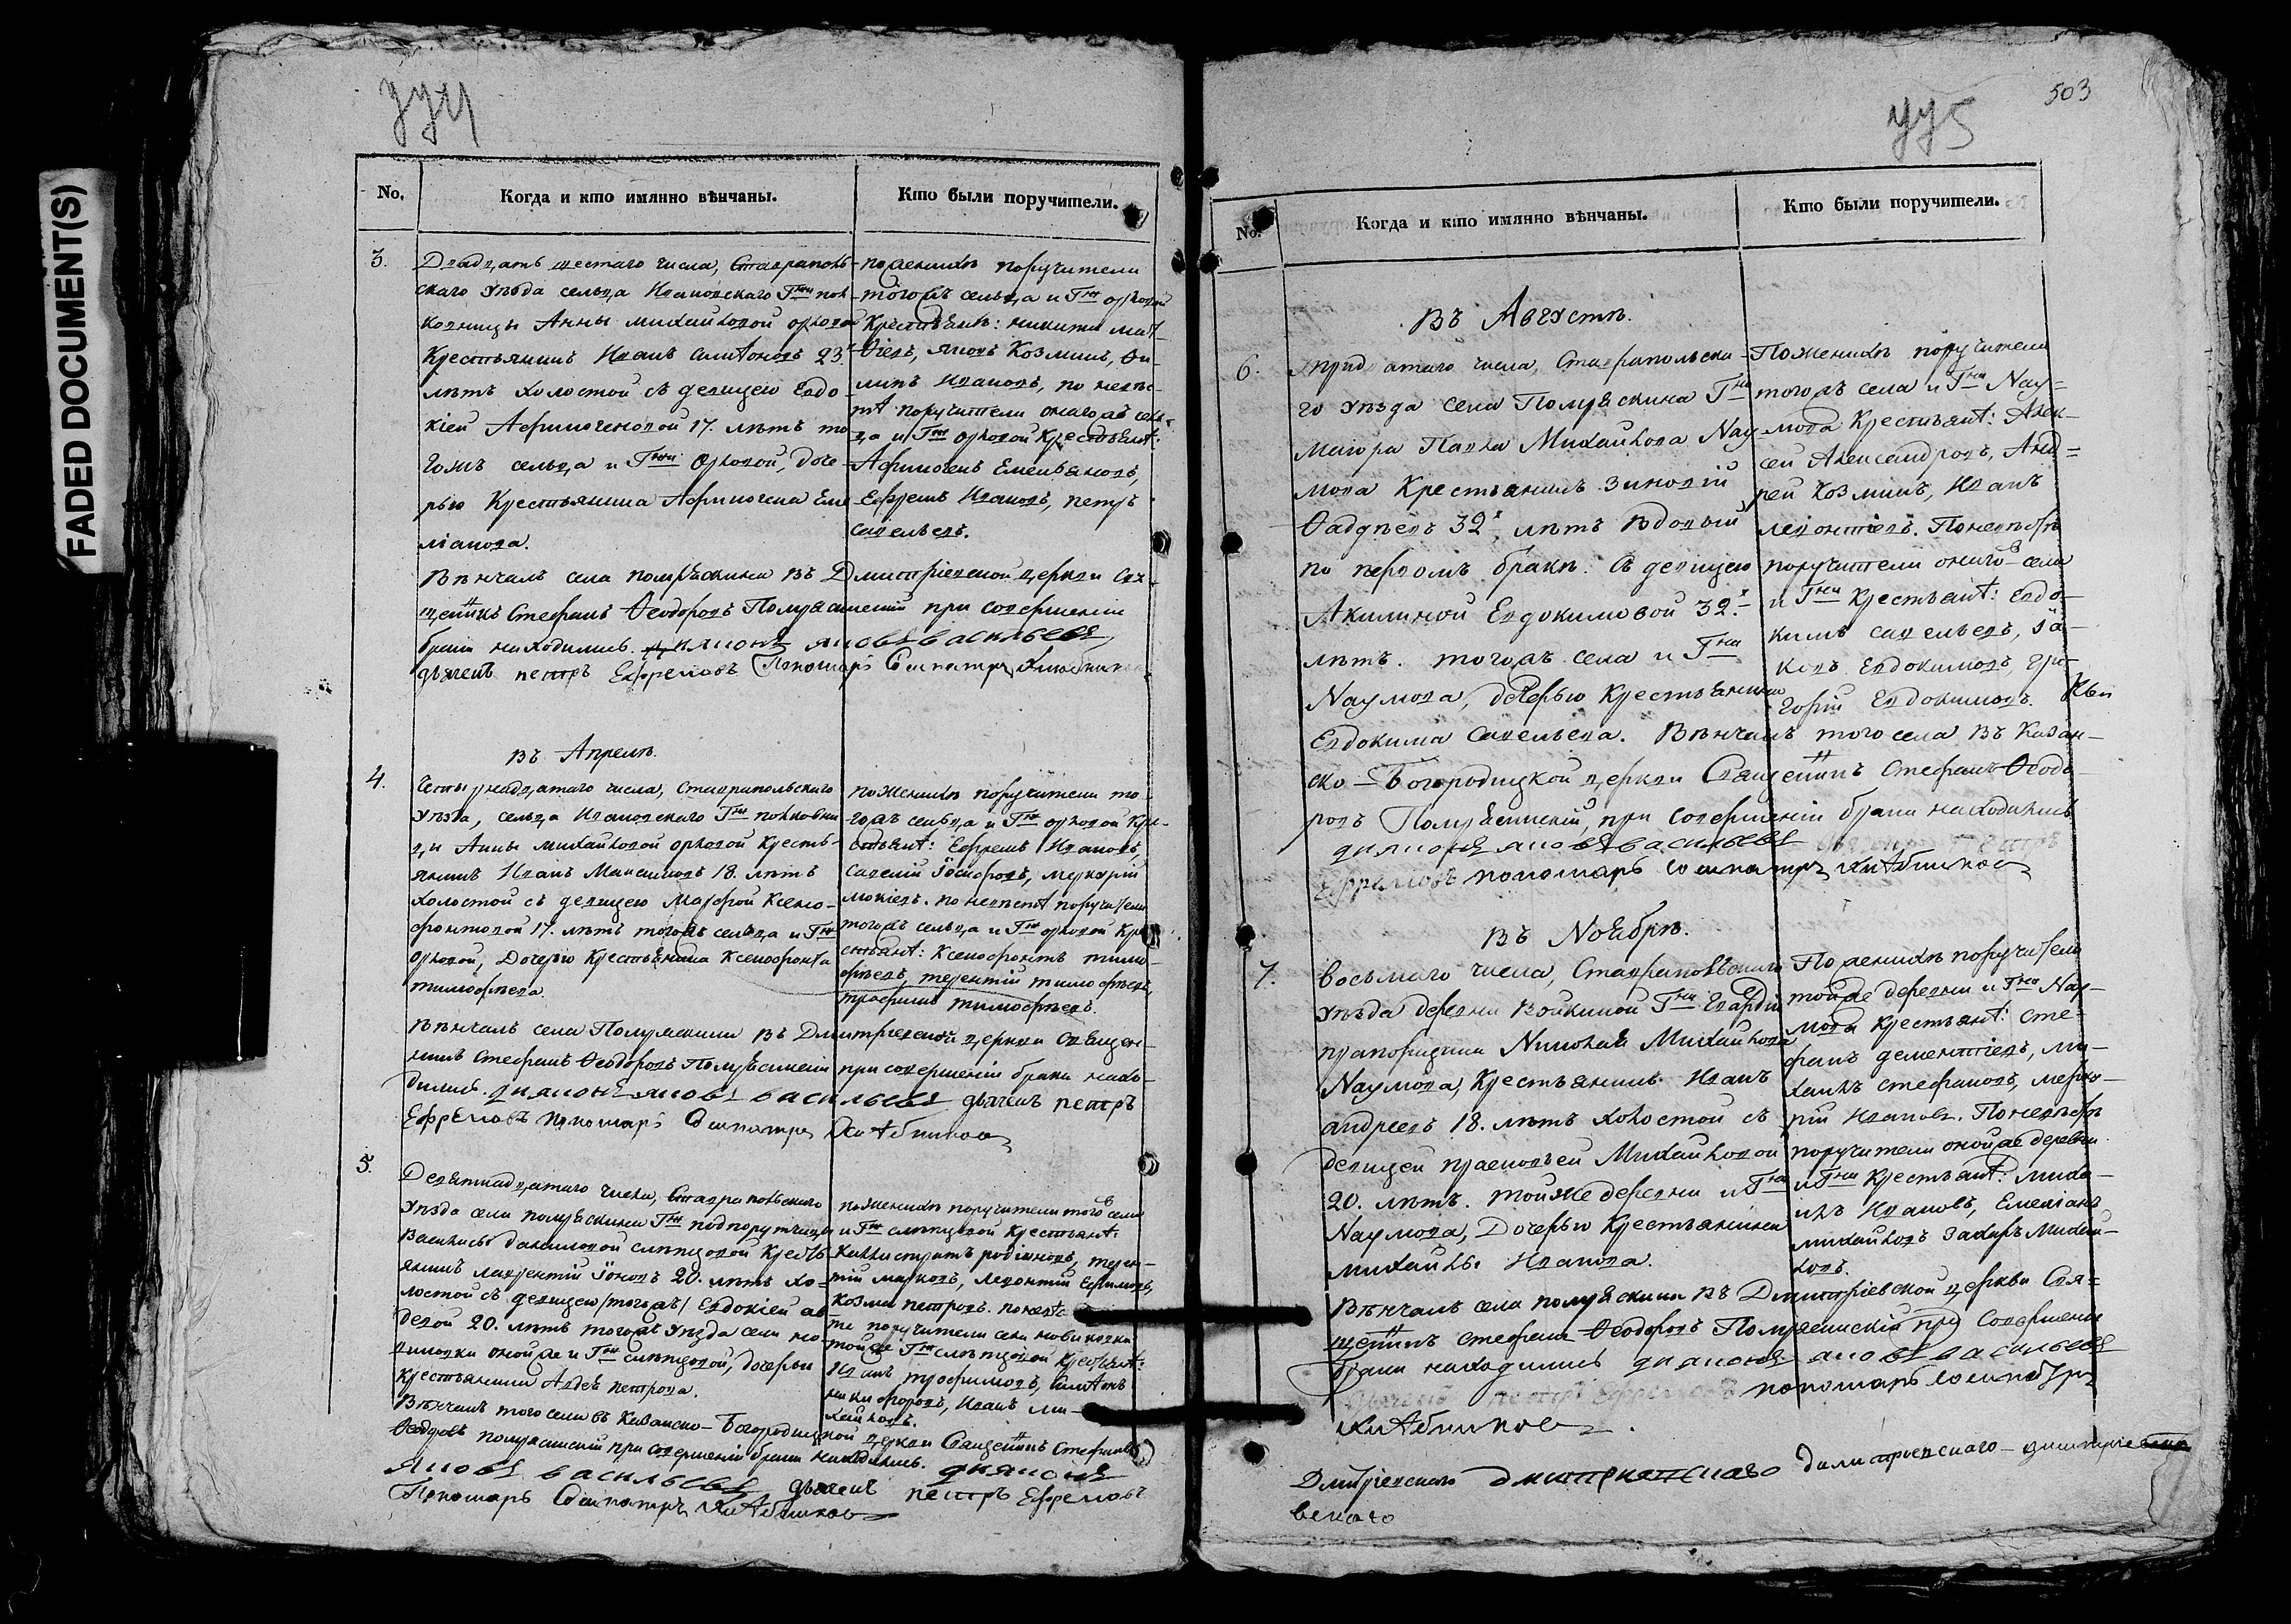 FADED DOCUMENT(S)
No.
Когда и кто имянно вѣнчаны.
Кто были поручители.
3.
Двадцать шестаго числа, Ставрополь-
скаго Уѣзда сельца Ивановскаго Г-жи пол
ковницы Анны Михайловой Орловой
Крестьянинъ Иванъ Антоновъ 23.
лѣтъ холостой съ девицею Евдо-
кіей Афиногеновой 17. лѣтъ то
гожъ сельца и Г-жи Орловой, доче
рью Крестьянина Афиногена Еме
лianова.
по женихѣ поручители
тогожъ сельца и Г-жи Орловой
Крестьяне: Никита Мат-
вѣевъ, Яковъ Козминъ, Фи-
липъ Ивановъ, по невѣс-
тѣ поручители онагожъ сель-
ца и Г-жи Орловой Крестьянѣ:
Афиногенъ Емельяновъ,
Ефремъ Ивановъ, Петръ
Савельевъ.
Вѣнчалъ села Помряскина въ Дмитріевской церкви Свя-
щенникъ Стефанъ Ѳеодоровъ Помряскинскій при совершеніи
брака находились. Диаконъ Яковъ Васильевъ
дьячекъ Петръ Ефремовъ Пономарь Сосипатръ
въ Апрелѣ.
4.
Четырнадцатаго числа, Ставропольскаго
Уѣзда, сельца Ивановскаго Г-жи полковни
цы Анны Михайловой Орловой Кресть-
янинъ Иванъ Максимовъ 18. лѣтъ
холостой съ девицею Марфой Ксено-
фонтовой 17. лѣтъ тогожъ сельца и Г-жи
Орловой, Дочерью Крестьянина Ксенофонта
Тимофѣева.
по женихѣ поручители то-
гожъ сельца и Г-жи Орловой Кре-
стьянѣ: Ефремъ Ивановъ,
Савелій Іосифовъ, Меркурій
Мокіевъ. по невѣстѣ поручители
тогожъ сельца и Г-жи Орловой Кре
стьянѣ: Ксенофонтъ Тимо-
фѣевъ, Терентій Тимофѣевъ,
Трофимъ Тимофѣевъ.
Вѣнчалъ села Помряскина въ Дмитріевской церкви Священ-
никъ Стефанъ Ѳеодоровъ Помряскинскій при совершеніи брака нахо-
дились. Диаконъ Яковъ Васильевъ дьячекъ Петръ
Ефремовъ Пономарь Сосипатръ
5.
Девятнадцатаго числа, Ставропольскаго
Уѣзда села Помряскина Г-жи подпоручицы
Василисы Даниловой Слѣпцовой Кресть
янинъ Лаврентій Іоновъ 20. лѣтъ хо-
лостой съ девицею /тогожъ/ Евдокіей Ав
деевой 20. лѣтъ тогожъ Уѣзда села Но-
виковки онойже и Г-жи Слѣпцовой, дочерью
Крестьянина Авдея Петрова.
по женихѣ поручители тогожъ села
и Г-жи Слѣпцовой Крестьянѣ:
Каллистратъ Родіоновъ, Терен-
тій Марковъ, Леонтій Ефимовъ,
Козма Петровъ. по невѣс-
тѣ поручители села Новиковки
тойже Г-жи Слѣпцовой Крестьянѣ:
Иванъ Трофимовъ, Антонъ
Никифоровъ, Иванъ Ми-
хайловъ.
Вѣнчалъ того села въ Казанско-Богородицкой церкви Священникъ Стефанъ
Ѳеодоровъ Помряскинскій при совершеніи брака находились. Диаконъ
Яковъ Васильевъ дьячекъ Петръ Ефремовъ
Пономарь Сосипатръ
503
No.
Когда и кто имянно вѣнчаны.
Кто были поручители.
Въ Августѣ.
6.
Тридцатаго числа, Ставропольска-
го Уѣзда села Помряскина Г-на
Маиора Павла Михайлова Nау
мова Крестьянинъ Зиновій
Ѳаддѣевъ 32х лѣтъ вдовый
по первомъ бракѣ. Съ девицею
Акилиной Евдокимовой 32.х
лѣтъ. тогожъ села и Г-на
Nаумова, дочерью Крестьянина
Евдокима Савельева.
По женихѣ поручители
тогожъ села и Г-на Nау=
мова Крестьянѣ: Алек-
сей Александровъ, Анд=
рей Козминъ, Иванъ
Леонтіевъ. По невѣстѣ
поручители онагожъ села
и Г-на Крестьянѣ: Евдо-
кимъ Савельевъ, Іа-
ковъ Евдокимовъ, Гри-
горій Евдокимовъ.
Вѣнчалъ того села въ Казан-
ско-Богородицкой церкви Священникъ Стефанъ Ѳеодо-
ровъ Помряскинскій, при совершеніи брака находились
диаконъ Яковъ Васильевъ дьячекъ Петръ
Ефремовъ пономарь Сосипатръ
Въ Nоябрѣ.
7.
восьмаго числа, Ставропольскаго
Уѣзда деревни Войкиной Г-на Гвардіи
прапорщика Nиколая Михайлова
Nаумова, Крестьянинъ Иванъ
Андреевъ 18. лѣтъ холостой съ
девицей Прасковьей Михайловой
20. лѣтъ. тойже деревни и Г-на
Nаумова, Дочерью Крестьянина
Михайлы Иванова.
По женихѣ поручители
тойже деревни и Г-на Nау-
мова Крестьянѣ: Сте-
фанъ Дементіевъ, Ми-
хаилъ Стефановъ, Мерку-
рій Ивановъ. По невѣстѣ
поручители онойже деревни
и Г-на Крестьянѣ: Миха-
илъ Ивановъ, Емеліанъ
Михайловъ Захаръ Михай-
ловъ.
Вѣнчалъ села Помряскина въ Дмитріевской церкви Свя=
щенникъ Стефанъ Ѳеодоровъ Помряскинскій при совершеніи
брака находились диаконъ Яковъ Васильевъ
дьячекъ Петръ Ефремовъ пономарь Сосипатръ
Дмитріевскаго